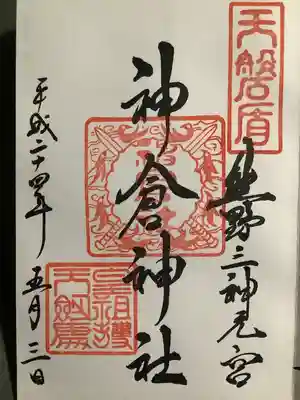 天磐盾
熊野三神元宮
神倉神社
平成二十四年 五月三日